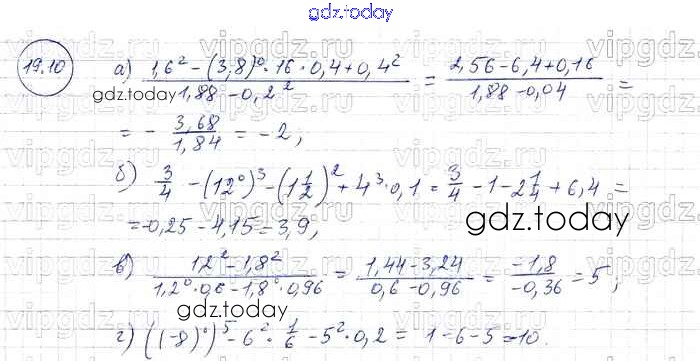 gdz.today
19.10
а) (1,6² − (3,8)⁰ · 16 · 0,4 + 0,4²) / (1,88 − 0,2²) = (2,56 − 6,4 + 0,16) / (1,88 − 0,04) =
gdz.today
= − 3,68/1,84 = −2;
б) 3/4 − (12⁰)³ − (1 1/2)² + 4³ · 0,1 = 3/4 − 1 − 2 1/4 + 6,4 =
= −0,25 − 4,15 = 3,9,
gdz.today
в) (1,2² − 1,8²) / (1,2⁰ · 0,6 − 1,8⁰ · 0,96) = (1,44 − 3,24) / (0,6 − 0,96) = −1,8 / −0,36 = 5;
gdz.today
г) ((−8)⁰)⁵ − 6² · 1/6 − 5² · 0,2 = 1 − 6 − 5 = −10.